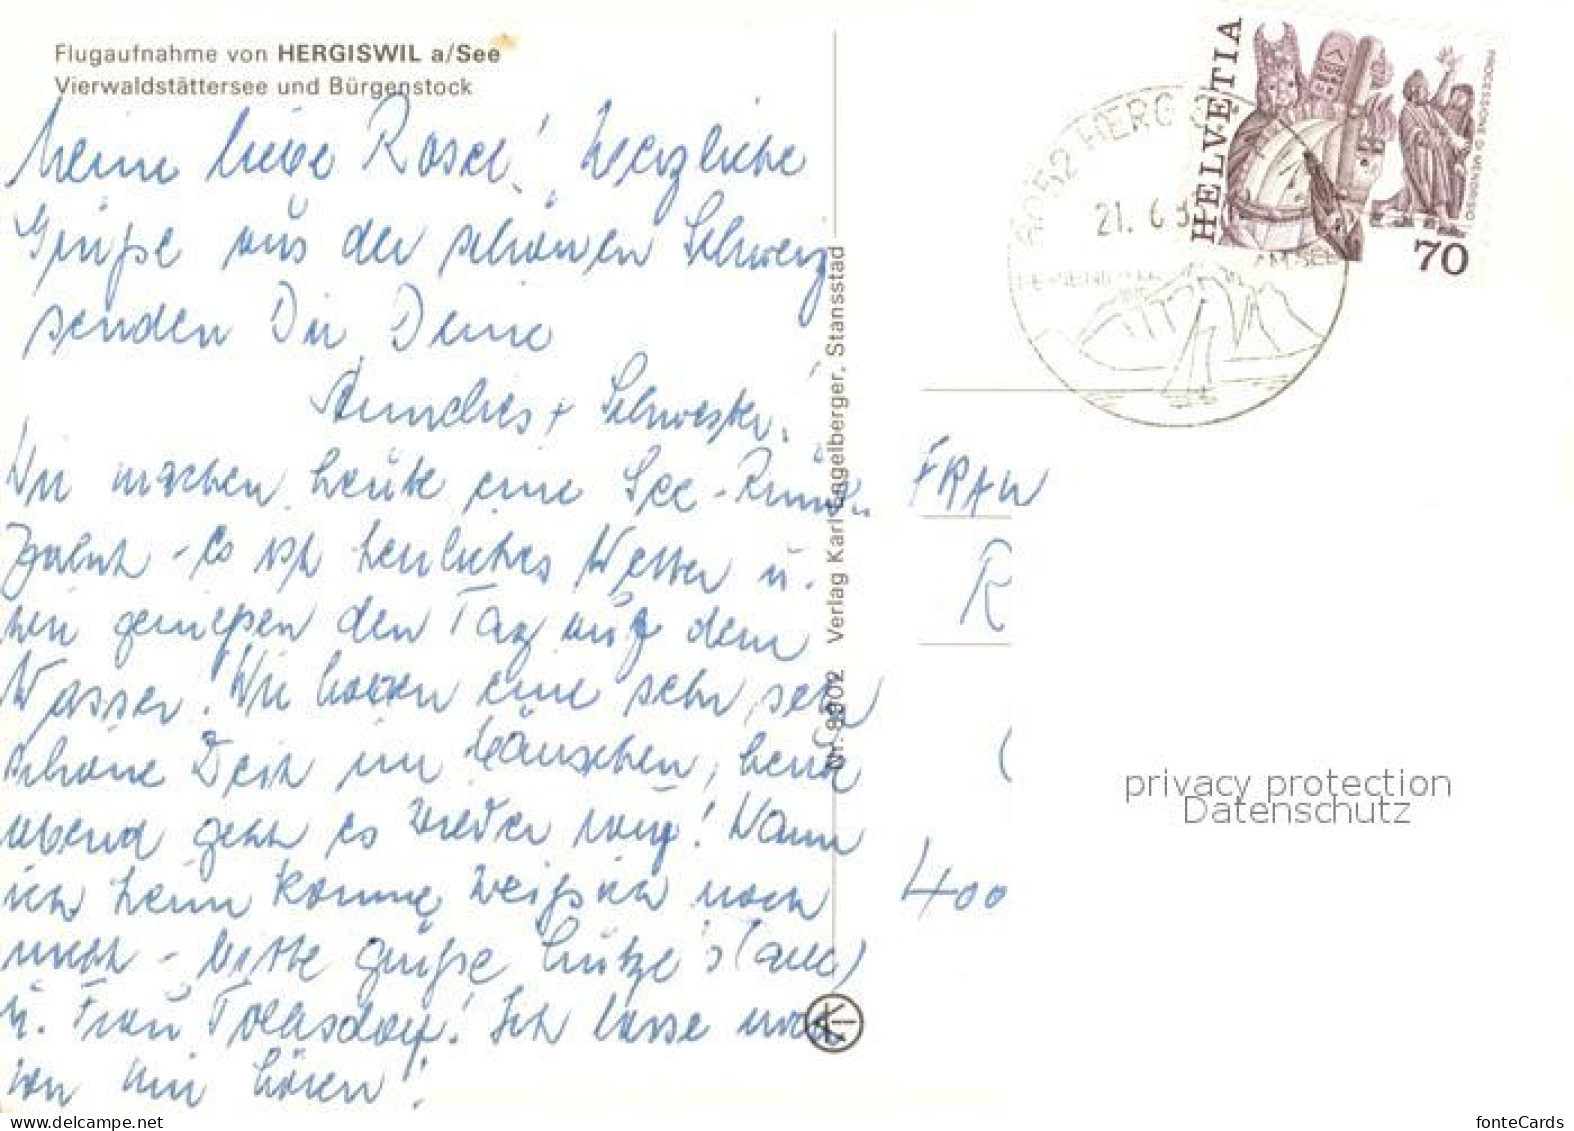 Flugaufnahme von HERGISWIL a/See
Vierwaldstättersee und Bürgenstock
Meine liebe Rosel! Herzliche
Grüße aus der schönen Schweiz
senden Dir Deine
Ännchen + Schwester!
Wir machen heute eine See-Rund-
fahrt - Es ist herrliches Wetter u.
wir genießen den Tag auf dem
Wasser. Wir haben eine sehr sehr
schöne Zeit im Häuschen, heute
abend geht es wieder rauf! Wann
ich heim komme weiß ich noch
nicht - bitte grüße (alle)
u. Frau Tolksdorf! Ich lasse noch
von mir hören!
Nr. 8902 Verlag Karl Engelberger, Stansstad
K
HELVETIA
PROCESSIONE DI MENDRISIO
70
6052 HERGIS
21. 6
AM SEE
FRAU
R
400
privacy protection
Datenschutz
www.delcampe.net
fonteCards